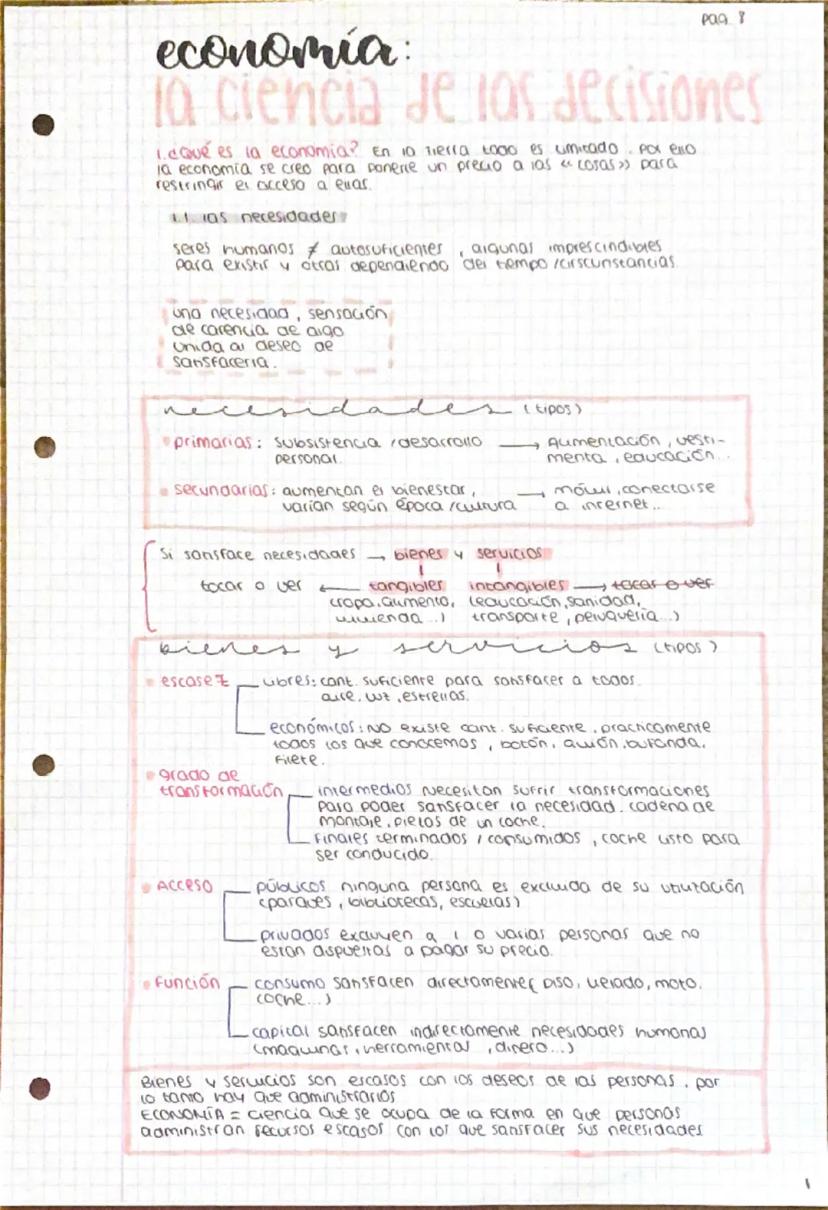 pág. 8
economía:
la ciencia de las decisiones
1. ¿Qué es la economía? En la Tierra todo es limitado. Por ello
la economía se creó para ponerle un precio a las «cosas» para
restringir el acceso a ellas.
1.1. las necesidades
seres humanos ≠ autosuficientes, algunas imprescindibles
para existir y otras dependiendo del tiempo/circunstancias
una necesidad, sensación
de carencia de algo
unida al deseo de
satisfacerla.
necesidades (tipos)
primarias: subsistencia/desarrollo → Alimentación, vesti-
personal. menta, educación...
secundarias: aumentan el bienestar, → móvil, conectarse
varían según época/cultura a internet...
Si satisface necesidades → bienes y servicios
tocar o ver ← tangibles intangibles → tocar o ver
(ropa, alimento, (educación, sanidad,
vivienda...) transporte, peluquería...)
bienes y servicios (tipos)
escasez libres: cant. suficiente para satisfacer a todos.
aire, luz, estrellas.
económicos: NO existe cant. suficiente, practicamente
todos los que conocemos, botón, avión, bufanda,
filete.
grado de
transformación intermedios necesitan sufrir transformaciones
para poder satisfacer la necesidad. cadena de
montaje, piezas de un coche.
Finales terminados/consumidos, coche listo para
ser conducido.
Acceso públicos ninguna persona es excluida de su utilización
(parques, bibliotecas, escuelas)
privados excluyen a 1 o varias personas que no
estan dispuestas a pagar su precio.
Función consumo satisfacen directamente (piso, helado, moto,
coche...)
capital satisfacen indirectamente necesidades humanas
(maquinas, herramientas, dinero...)
Bienes y servicios son escasos con los deseos de las personas, por
lo tanto hay que administrarlos
ECONOMÍA = ciencia que se ocupa de la forma en que personas
administran recursos escasos con los que satisfacer sus necesidades
1